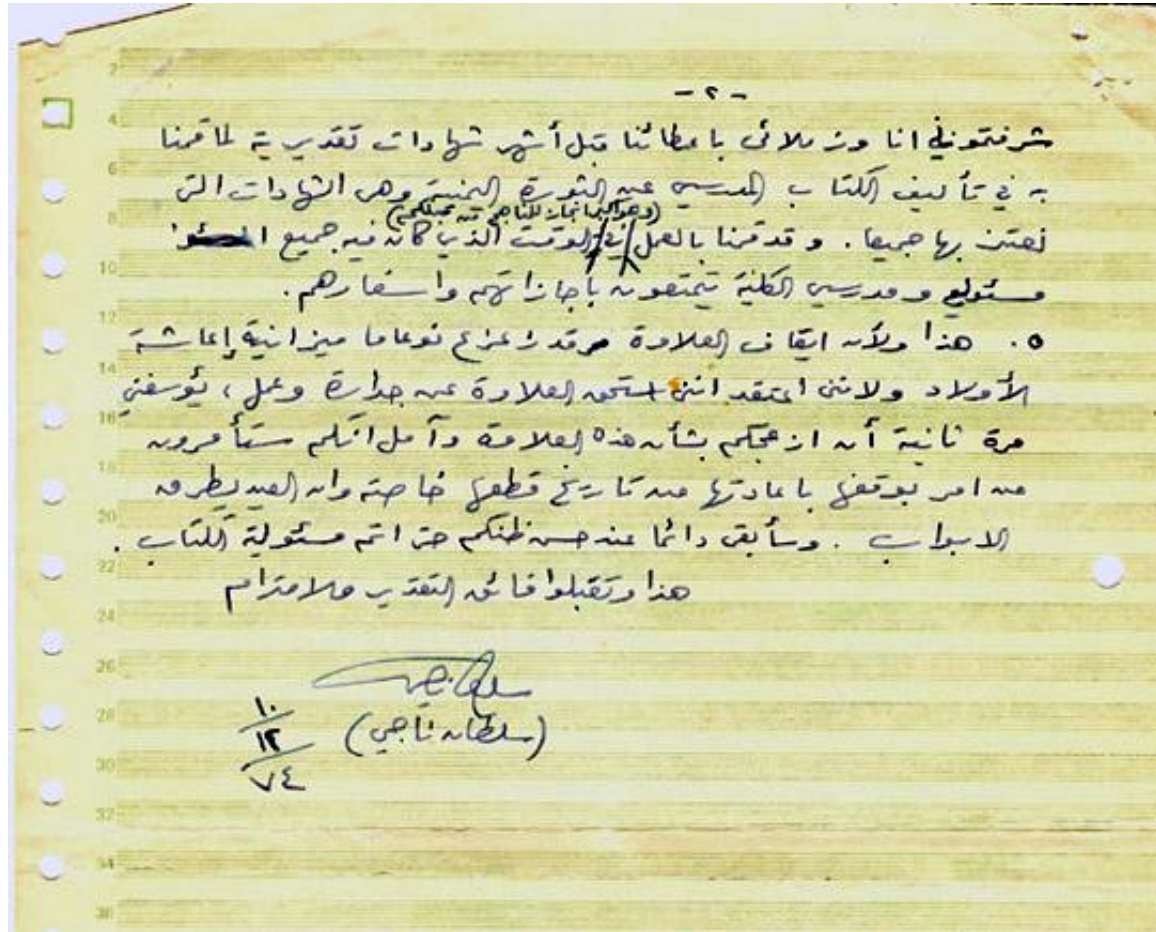 - ٢ -
شرفتموني انا وزملائي باعطائنا قبل أشهر شهادات تقديرية لما قمنا
به في تأليف الكتاب المدرسي عن الثورة اليمنية وهي الشهادات التي
نعتز بها جميعا . وقد قمنا بالعمل في الوقت الذي كان فيه جميع
مسئولي ومدرسي الكلية يتمتعون باجازاتهم واسفارهم .
٥. هذا ولأن ايقاف العلاوة قد زعزع نوعاما ميزانية إعاشة
الأولاد ولانني اعتقد انني استحق العلاوة عن جدارة وعمل ، يؤسفني
مرة ثانية أن ازعجكم بشأن هذه العلاوة وآمل انكم ستأمرون
من امر بوقفها باعادتها من تاريخ قطعها خاصة وان العيد يطرق
الابواب . وسأبقى دائما عند حسن ظنكم حتى اتم مسئولية الكتاب .
هذا وتقبلوا فائق التقدير والاحترام
(سلطان ناجي)
١٠/١٢/٧٤
2
4
6
8
10
12
14
16
18
20
22
24
26
28
30
32
34
36